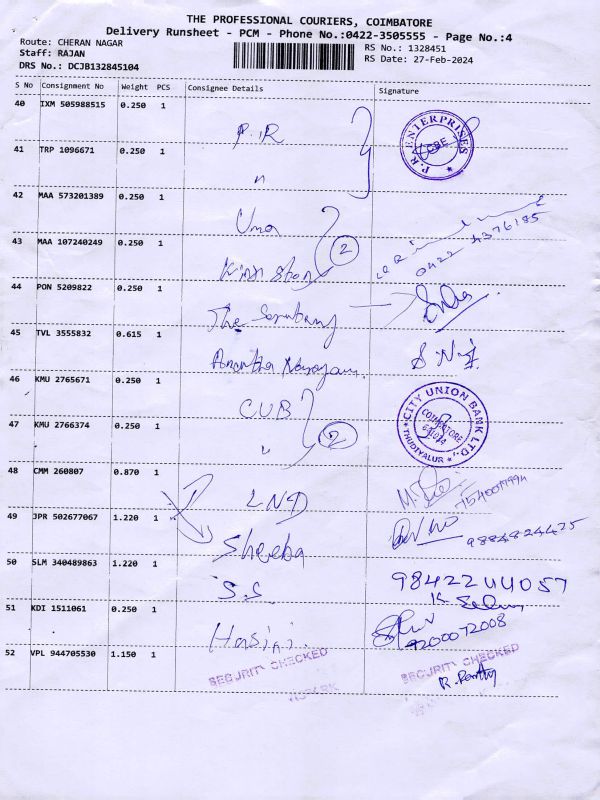 THE PROFESSIONAL COURIERS, COIMBATORE
Delivery Runsheet - PCM - Phone No.:0422-3505555 - Page No.:4
Route: CHERAN NAGAR
RS No.: 1328451
Staff: RAJAN
RS Date: 27-Feb-2024
DRS No.: DCJB132845104
S No Consignment No Weight PCS Consignee Details Signature
40 IXM 505988515 0.250 1
P.R
P.R ENTERPRISES CBE
41 TRP 1096671 0.250 1
"
42 MAA 573201389 0.250 1
Uma
43 MAA 107240249 0.250 1
2
0422 4376185
44 PON 5209822 0.250 1
The
45 TVL 3555832 0.615 1
Anantha Narayan.
46 KMU 2765671 0.250 1
C.U.B
CITY UNION BANK LTD. COIMBATORE THUDIYALUR
47 KMU 2766374 0.250 1
" 2
48 CMM 260807 0.870 1
LND
49 JPR 502677067 1.220 1
Sheeba
9884824425
50 SLM 340489863 1.220 1
S.S.
98422 44057
51 KDI 1511061 0.250 1
Hasini.
9200072008
52 VPL 944705530 1.150 1
SECURITY CHECKED
SECURITY CHECKED